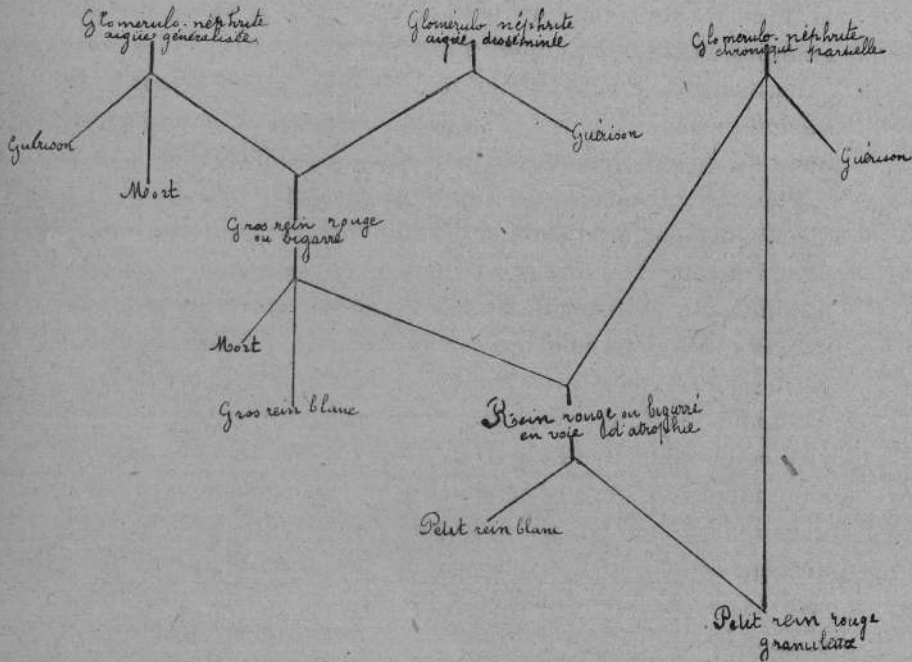 Glomérulo-néphrite
aigüe généralisée
Glomérulo néphrite
aigüe disséminée
Glomérulo-néphrite
chronique partielle
Guérison
Mort
Guérison
Guérison
Gros rein rouge
ou bigarré
Mort
Gros rein blanc
Rein rouge ou bigarré
en voie d'atrophie
Petit rein blanc
Petit rein rouge
granuleux